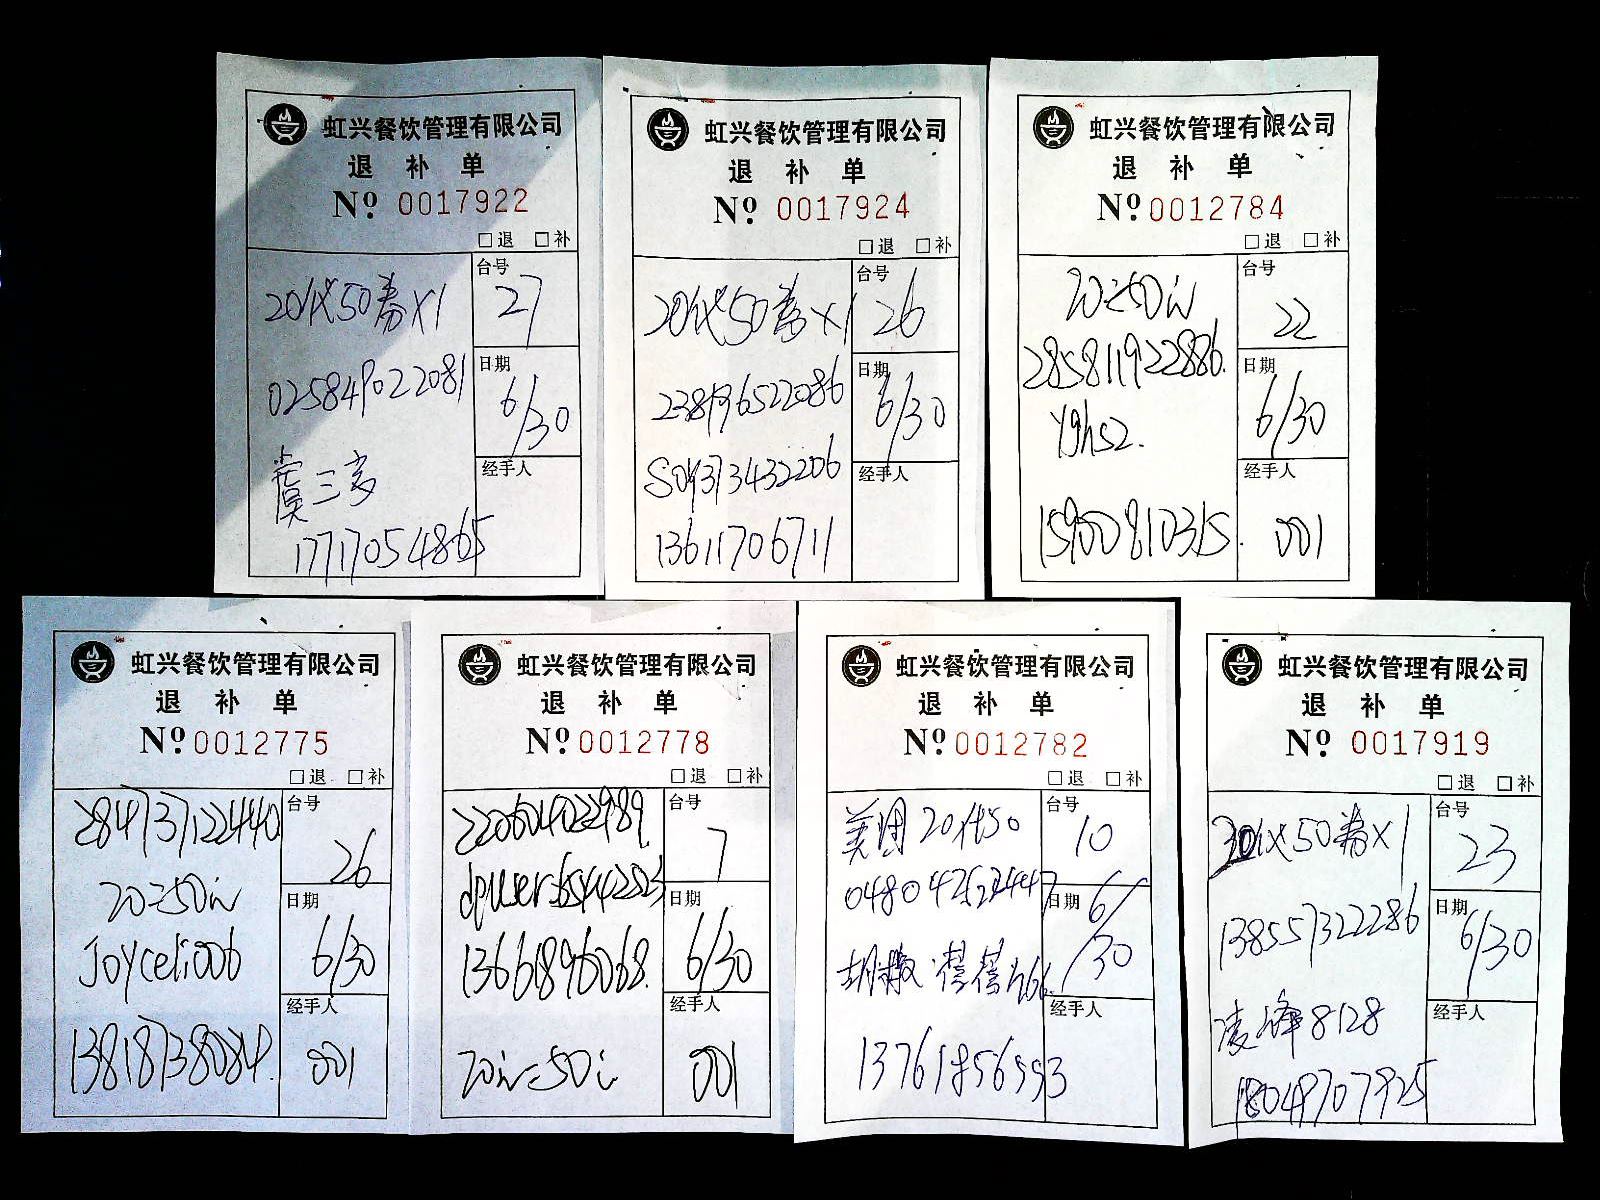 虹兴餐饮管理有限公司
退 补 单
Nº 0017922
□退 □补
台号
27
20代50券×1
日期
6/30
025849022081
经手人
虞三岁
17717054865
虹兴餐饮管理有限公司
退 补 单
Nº 0017924
□退 □补
台号
26
20代50券×1
日期
6/30
238196522086
经手人
13611706711
虹兴餐饮管理有限公司
退 补 单
Nº 0012784
□退 □补
台号
22
285811922886.
日期
6/30
Y9hs2.
经手人
15900810315.
001
虹兴餐饮管理有限公司
退 补 单
Nº 0012775
□退 □补
284737122440
台号
26
日期
6/30
Joyceli006
经手人
13818738084.
001
虹兴餐饮管理有限公司
退 补 单
Nº 0012778
□退 □补
220604022989.
台号
7
日期
6/30
13661896068.
经手人
001
虹兴餐饮管理有限公司
退 补 单
Nº 0012782
□退 □补
美团20代50
台号
10
日期
6/30
经手人
虹兴餐饮管理有限公司
退 补 单
Nº 0017919
□退 □补
台号
23
20代50券×1
日期
6/30
138557322286
经手人
凌峰8128
18049707925